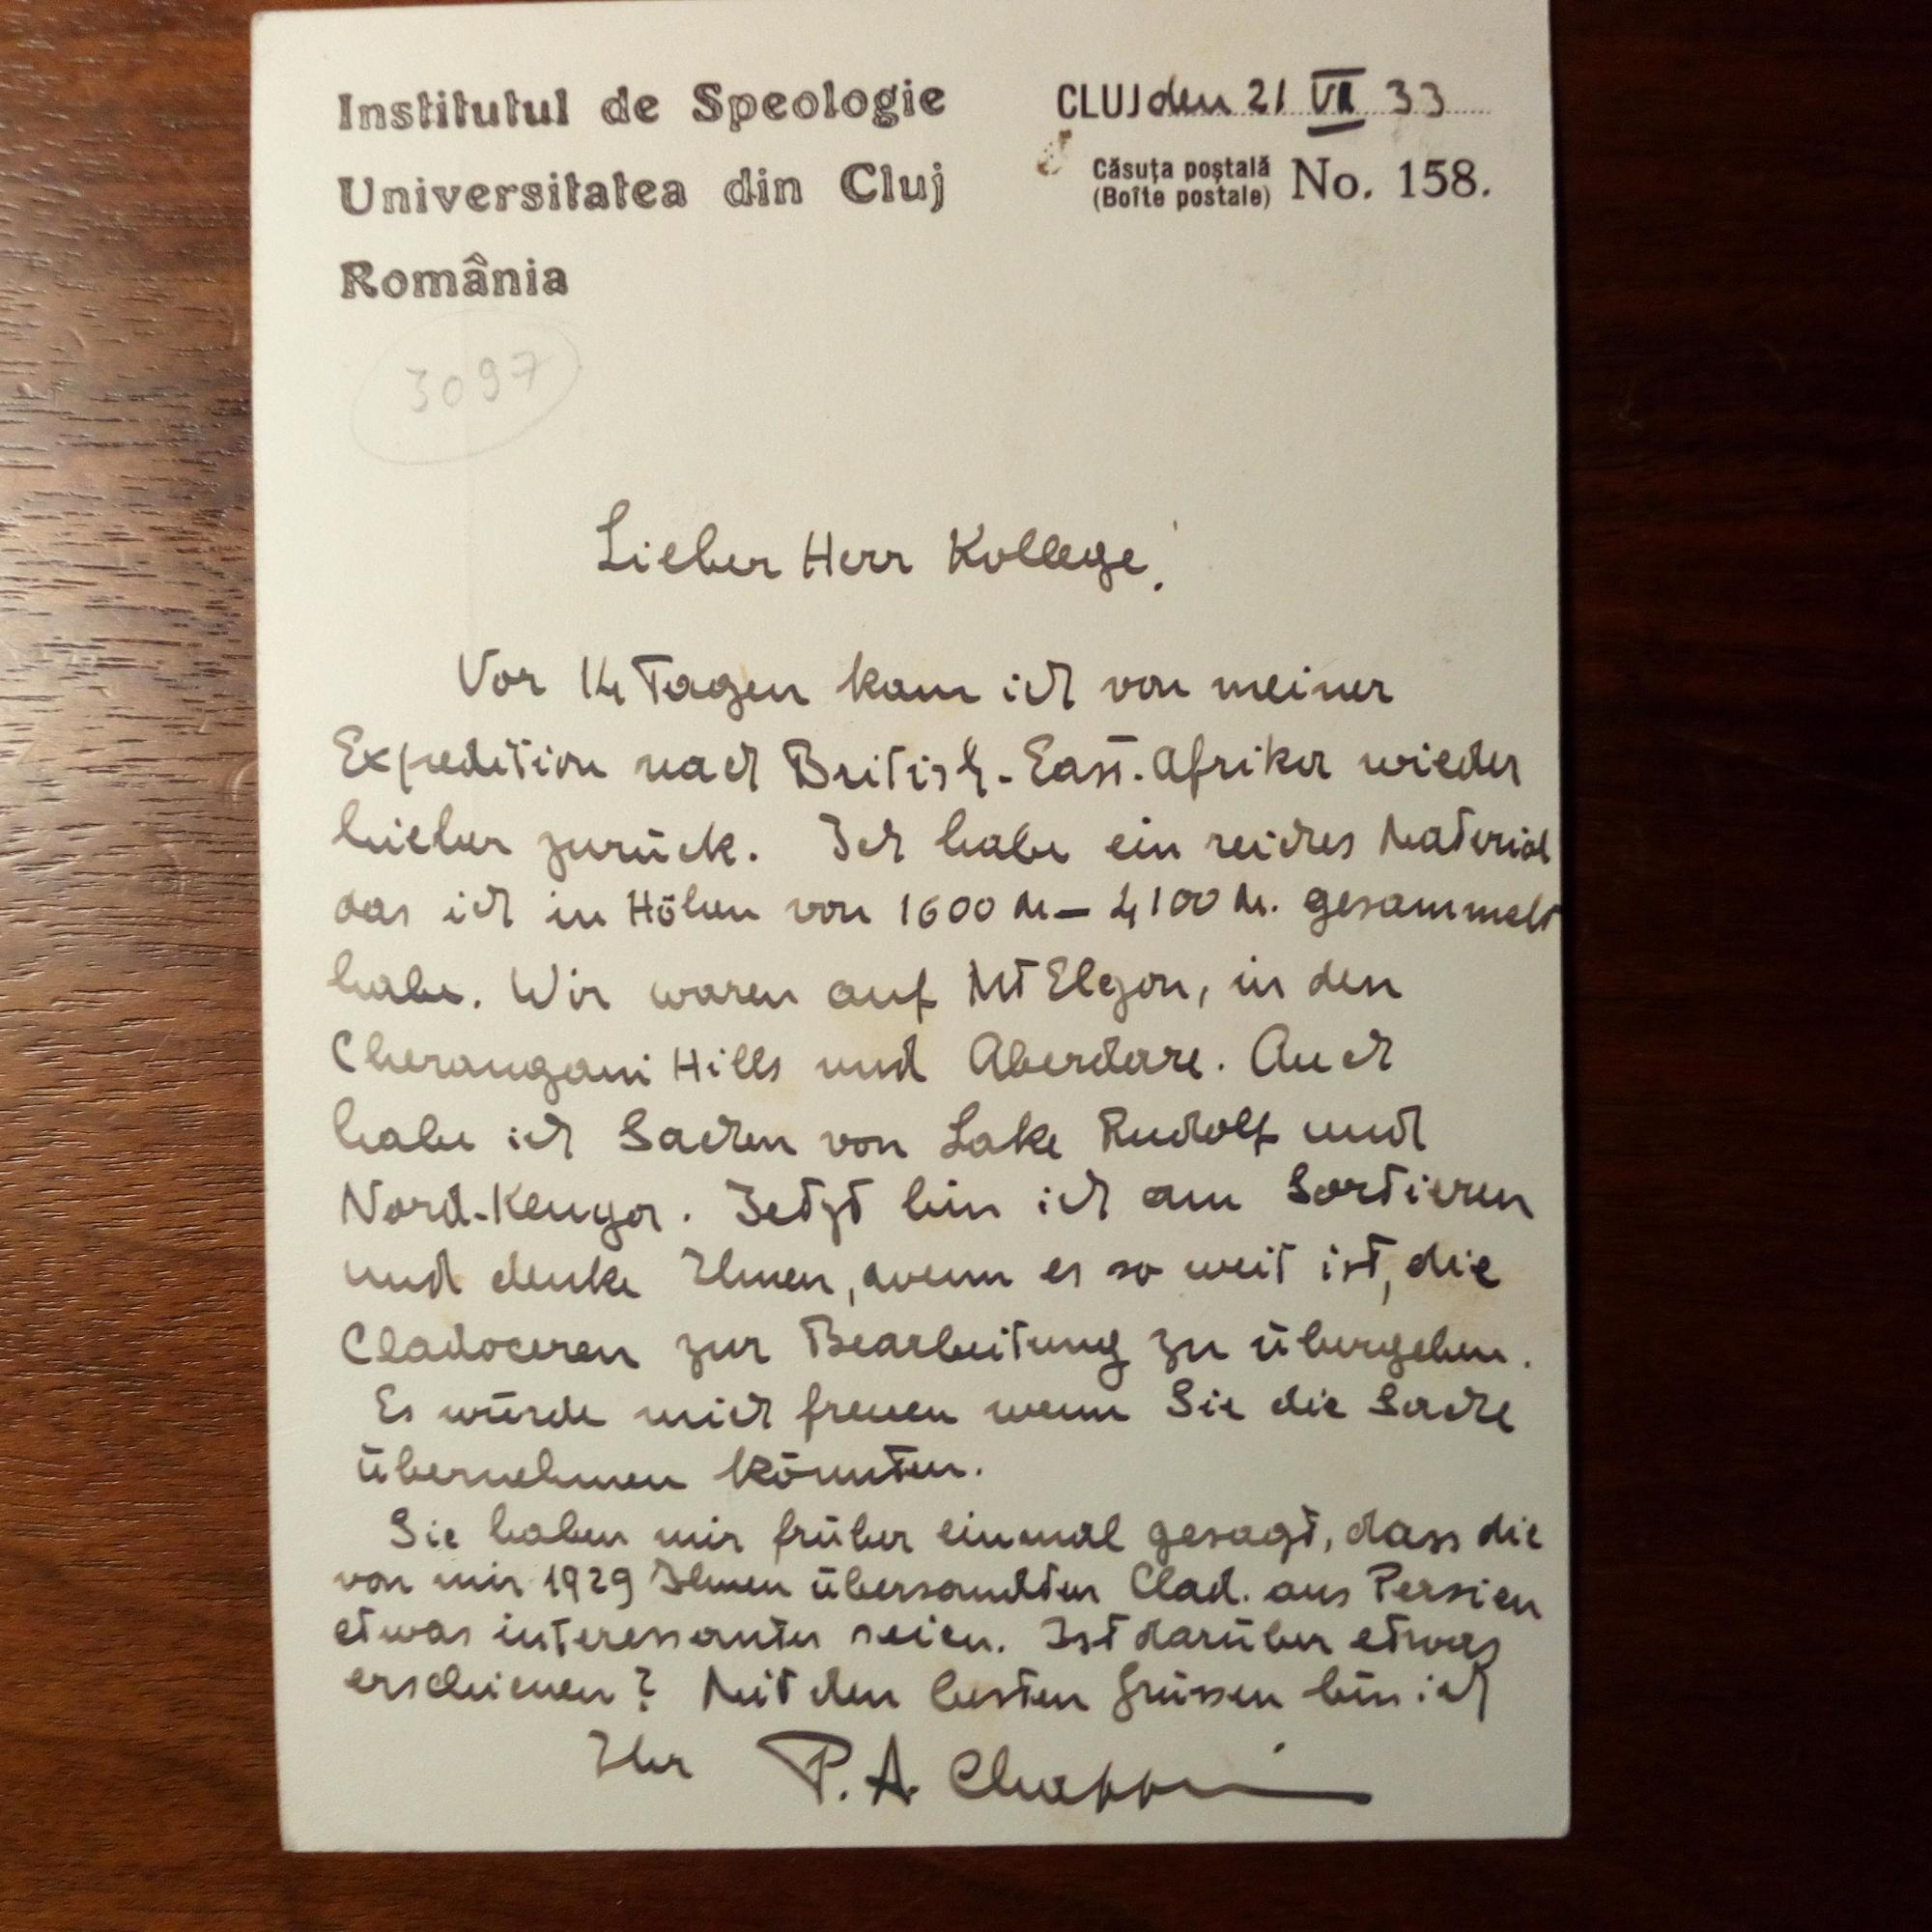 Institutul de Speologie
Universitatea din Cluj
România
CLUJ den 21 VII 33
Căsuța poștală
(Boîte postale) No. 158.
3097
Lieber Herr Kollege!
Vor 14 Tagen kam ich von meiner
Expedition nach British-East-Afrika wieder
hieher zurück. Ich habe ein reiches Material
das ich in Höhen von 1600 M – 4100 M. gesammelt
habe. Wir waren auf Mt Elgon, in den
Cherangani Hills und Aberdare. Auch
habe ich Sachen von Lake Rudolf und
Nord-Kenya. Jetzt bin ich am Sortieren
und denke Ihnen, wenn es so weit ist, die
Cladoceren zur Bearbeitung zu übergeben.
Es würde mich freuen wenn Sie die Sache
übernehmen könnten.
Sie haben mir früher einmal gesagt, dass die
von mir 1929 Ihnen übersandten Clad. aus Persien
etwas interessantes seien. Ist darüber etwas
erschienen? Mit den besten Grüssen bin ich
Ihr P. A. Chappuis